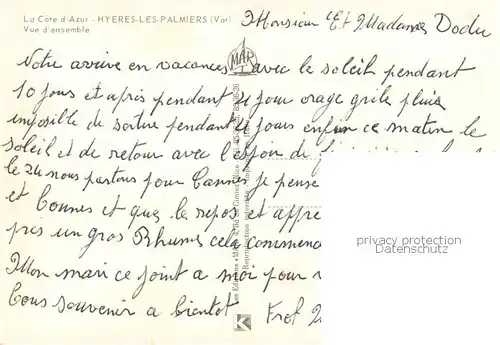 La Côte d'Azur - HYERES-LES-PALMIERS (Var)
Vue d'ensemble
Monsieur Et Madames Dodu
MAR
Notre arrive en vacances avec le soleil pendant
10 jours et après pendant 4 jour orage grile pluie
imposible de sortire pendant 4 jours enfin ce matin le
soleil et de retour avec l'espoir de
le 24 nous partons pour Cannes je pense
et Connes et que le repos et appre
pris un gros Rhume cela commenc
Mon mari ce joint a moi pour
bons souvenir a bientot
privacy protection
DanSammler.de
K